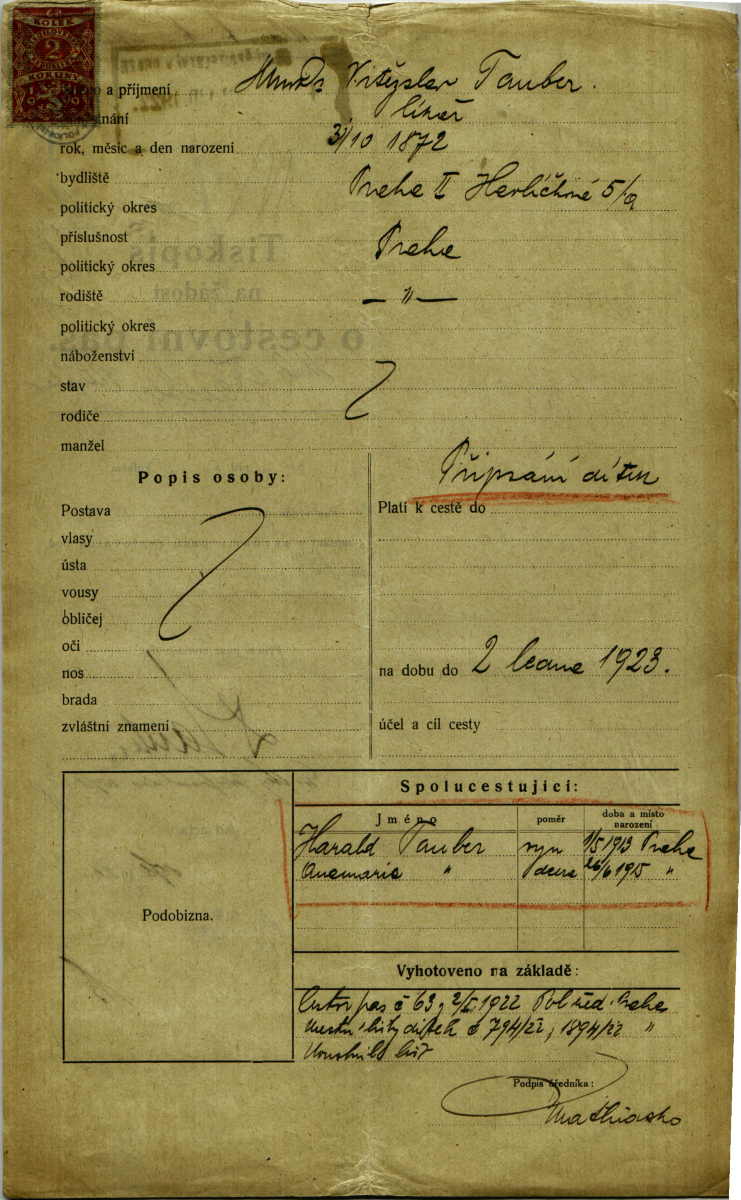 KOLEK
2
KORUNY
jméno a příjmení MUDr Vítězslav Tauber.
zaměstnání lékař
rok, měsíc a den narození 3/10 1872
bydliště Praha II Havlíčkovo 5/a
politický okres
příslušnost Praha
politický okres
rodiště — " —
politický okres
náboženství
stav
rodiče
manžel
Popis osoby:
Postava
vlasy
ústa
vousy
obličej
oči
nos
brada
zvláštní znamení
Připsání dítek
Platí k cestě do
na dobu do 2 ledna 1923.
účel a cíl cesty
Podobizna.
Spolucestující:
Jméno poměr doba a místo narození
Harald Tauber syn 1/5 1913 Praha
Anamarie " dcera 26/6 1915 "
Vyhotoveno na základě:
Cestov pas č 63, 2/I 1922 Pol řed. Praha
č 794/22, 1894/22 "
Podpis úředníka: